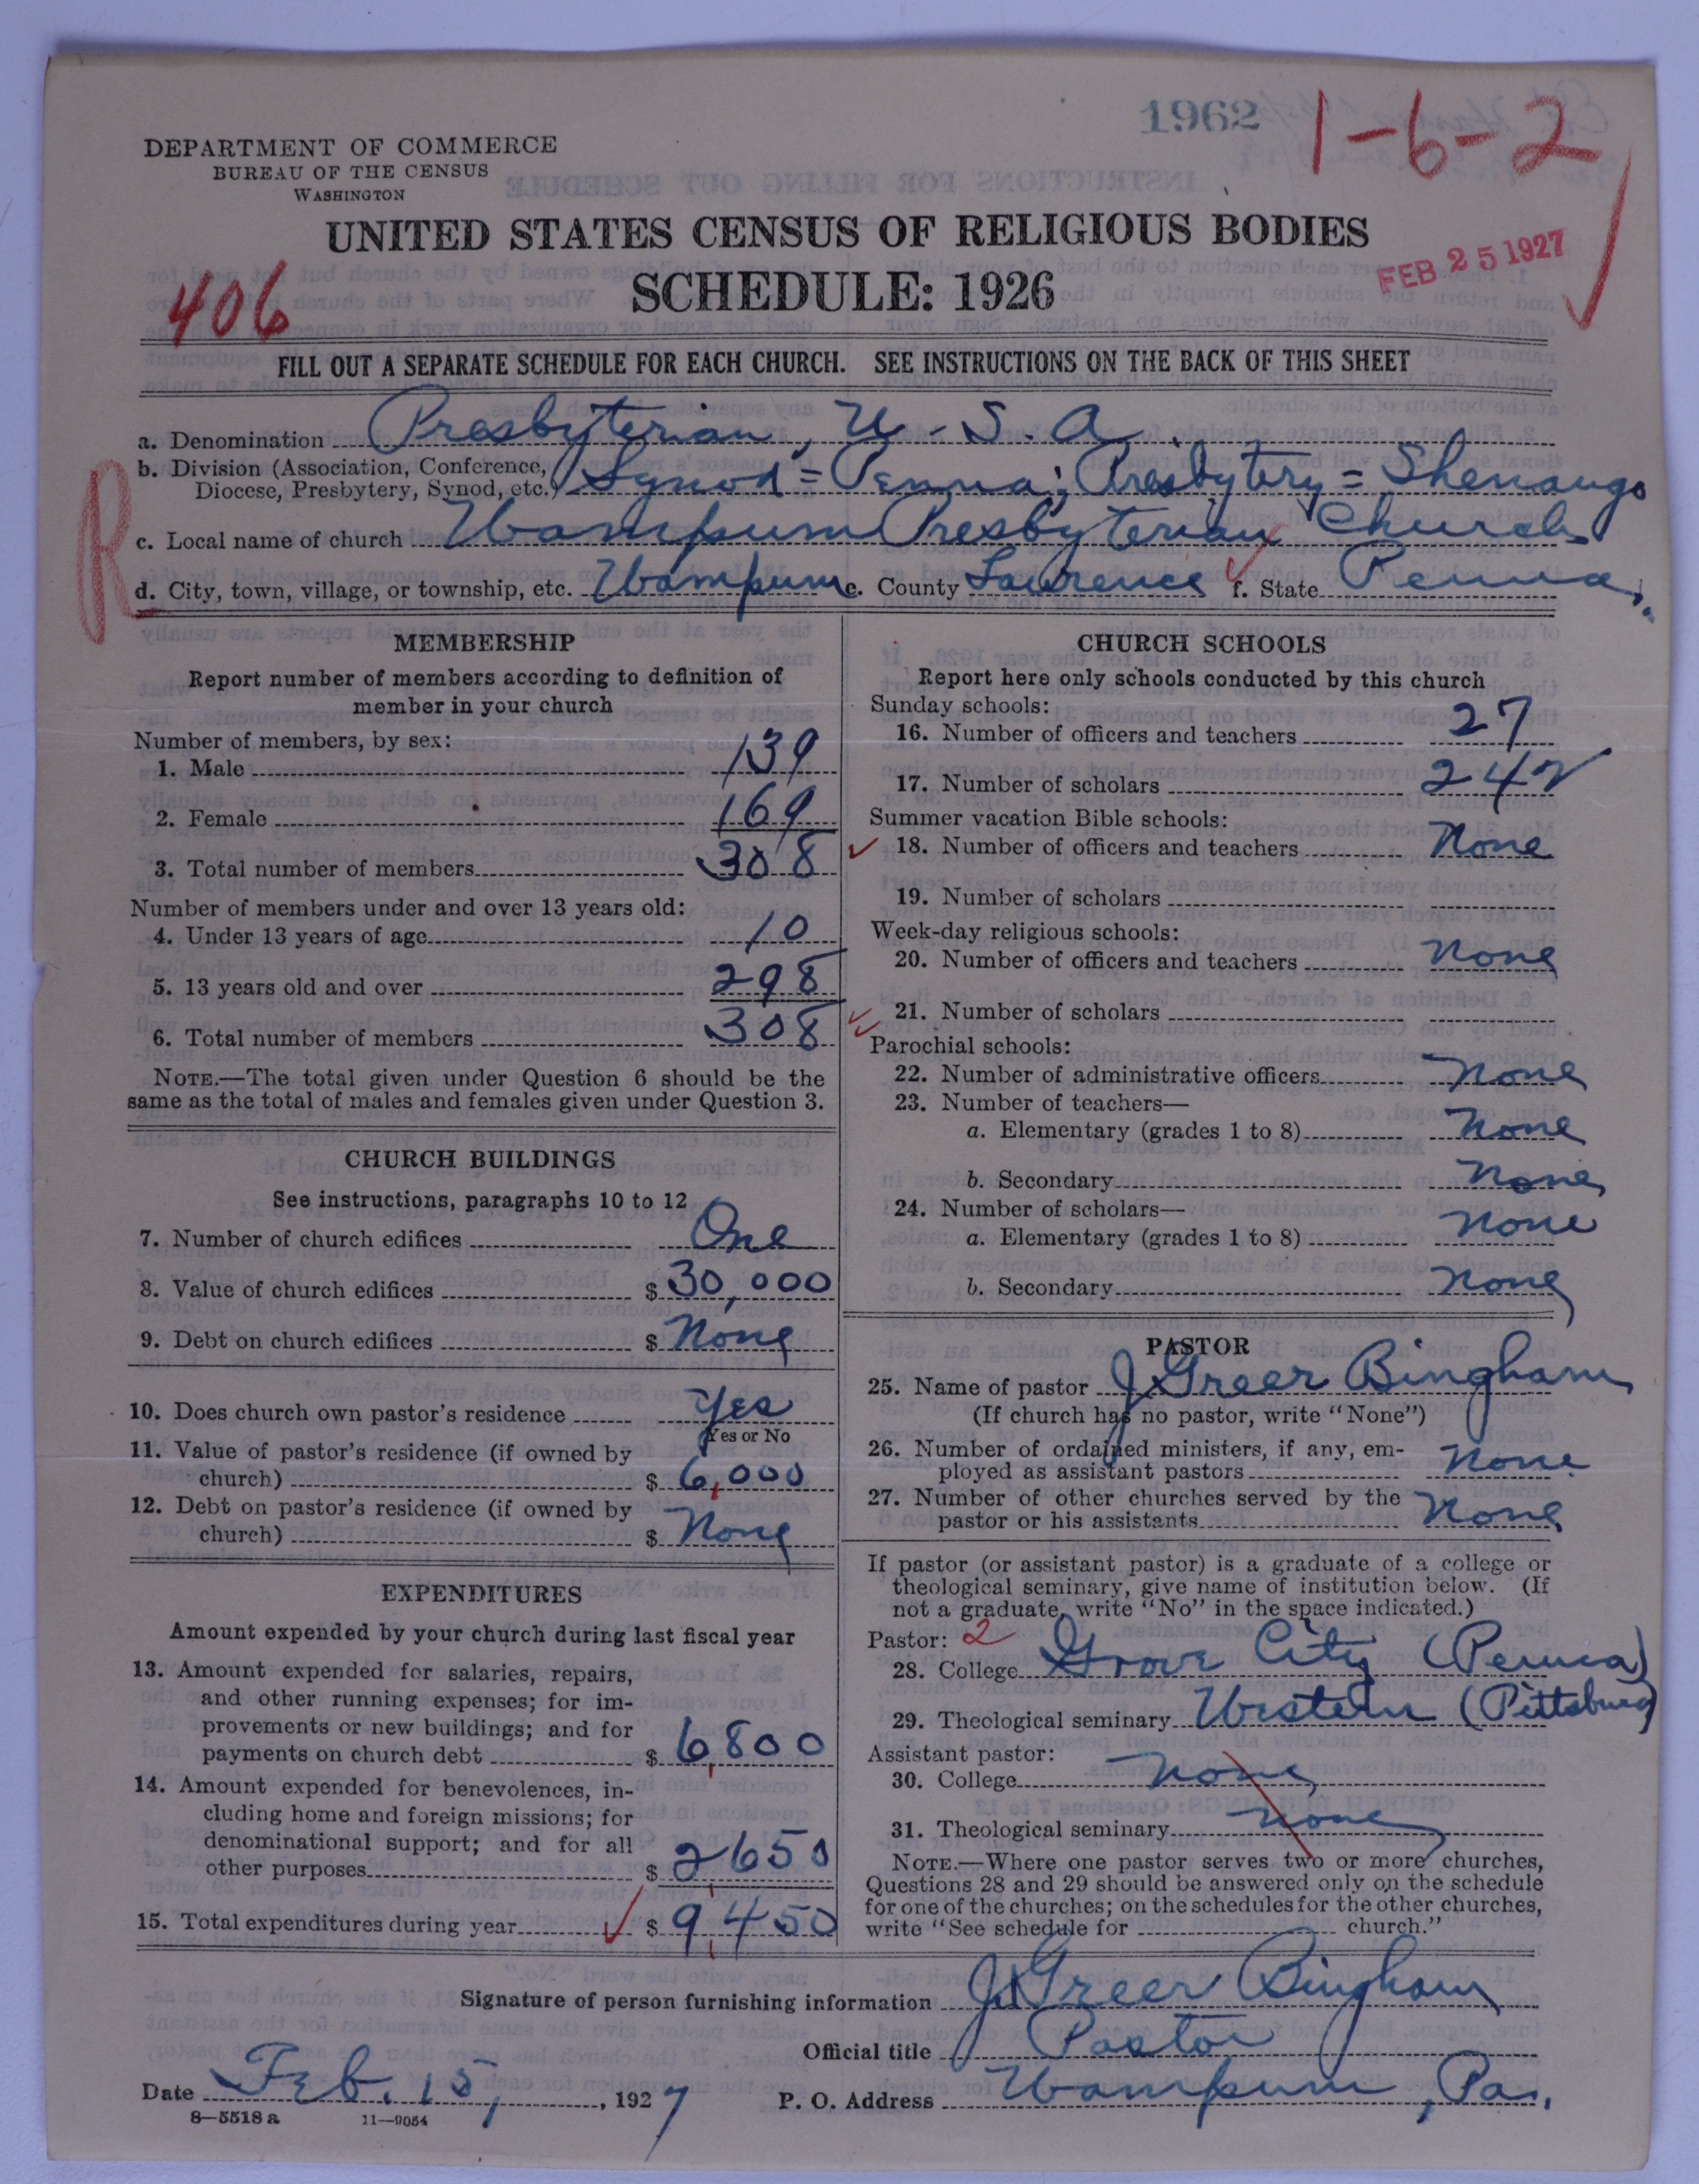 1962
1-6-2
DEPARTMENT OF COMMERCE
BUREAU OF THE CENSUS
WASHINGTON
UNITED STATES CENSUS OF RELIGIOUS BODIES
SCHEDULE: 1926
FEB 25 1927
406
FILL OUT A SEPARATE SCHEDULE FOR EACH CHURCH. SEE INSTRUCTIONS ON THE BACK OF THIS SHEET
a. Denomination Presbyterian, U. S. A.
b. Division (Association, Conference, Diocese, Presbytery, Synod, etc.) Synod = Penna; Presbytery = Shenango
R
c. Local name of church Wampum Presbyterian Church
d. City, town, village, or township, etc. Wampum e. County Lawrence f. State Penna.
MEMBERSHIP
Report number of members according to definition of
member in your church
Number of members, by sex:
1. Male 139
2. Female 169
3. Total number of members 308
Number of members under and over 13 years old:
4. Under 13 years of age 10
5. 13 years old and over 298
6. Total number of members 308
NOTE.—The total given under Question 6 should be the
same as the total of males and females given under Question 3.
CHURCH BUILDINGS
See instructions, paragraphs 10 to 12
7. Number of church edifices One
8. Value of church edifices $ 30,000
9. Debt on church edifices $ None
10. Does church own pastor's residence Yes
Yes or No
11. Value of pastor's residence (if owned by
church) $ 6,000
12. Debt on pastor's residence (if owned by
church) $ None
EXPENDITURES
Amount expended by your church during last fiscal year
13. Amount expended for salaries, repairs,
and other running expenses; for im-
provements or new buildings; and for
payments on church debt $ 6,800
14. Amount expended for benevolences, in-
cluding home and foreign missions; for
denominational support; and for all
other purposes $ 2650
15. Total expenditures during year $ 9,450
CHURCH SCHOOLS
Report here only schools conducted by this church
Sunday schools:
16. Number of officers and teachers 27
17. Number of scholars 242
Summer vacation Bible schools:
18. Number of officers and teachers None
19. Number of scholars
Week-day religious schools:
20. Number of officers and teachers None
21. Number of scholars
Parochial schools:
22. Number of administrative officers None
23. Number of teachers—
a. Elementary (grades 1 to 8) None
b. Secondary None
24. Number of scholars—
a. Elementary (grades 1 to 8) None
b. Secondary None
PASTOR
25. Name of pastor J Greer Bingham
(If church has no pastor, write "None")
26. Number of ordained ministers, if any, em-
ployed as assistant pastors None
27. Number of other churches served by the
pastor or his assistants None
If pastor (or assistant pastor) is a graduate of a college or
theological seminary, give name of institution below. (If
not a graduate, write "No" in the space indicated.)
Pastor: 2
28. College Grove City (Penna)
29. Theological seminary Western (Pittsburg)
Assistant pastor:
30. College None
31. Theological seminary None
NOTE.—Where one pastor serves two or more churches,
Questions 28 and 29 should be answered only on the schedule
for one of the churches; on the schedules for the other churches,
write "See schedule for church."
Signature of person furnishing information J Greer Bingham
Official title Pastor
Date Feb. 15, 1927 P. O. Address Wampum, Pa.
8—5518 a 11—9054